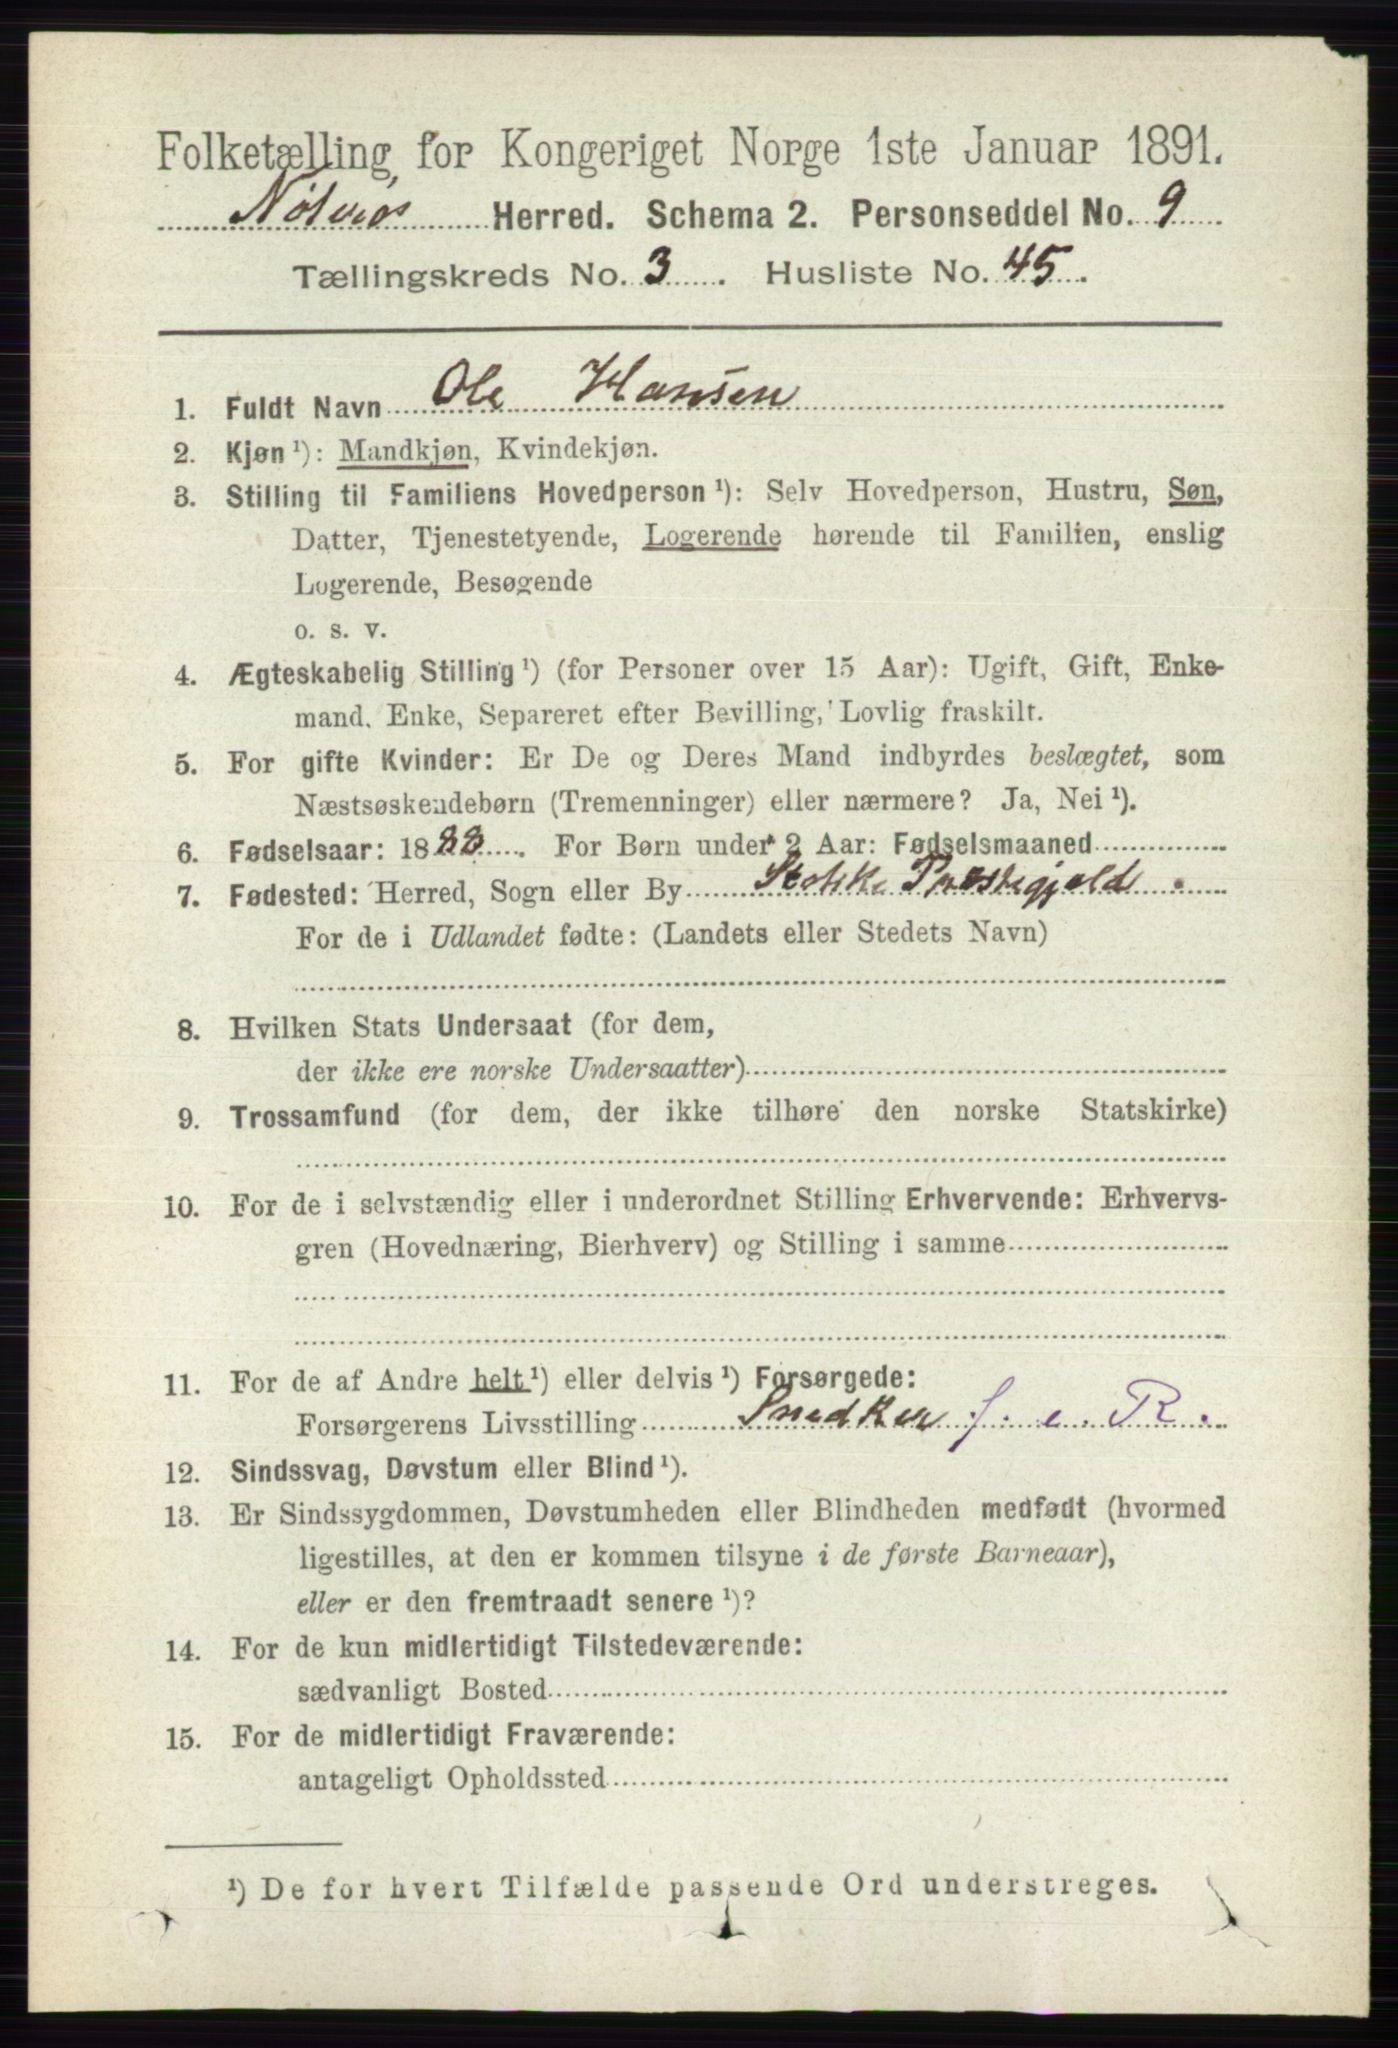 Folketælling for Kongeriget Norge 1ste Januar 1891.
Nøterø Herred. Schema 2. Personseddel No. 9
Tællingskreds No. 3. Husliste No. 45.
1. Fuldt Navn Ole Hansen
2. Kjøn ¹): Mandkjøn, Kvindekjøn.
3. Stilling til Familiens Hovedperson ¹): Selv Hovedperson, Hustru, Søn,
Datter, Tjenestetyende, Logerende hørende til Familien, enslig
Logerende, Besøgende
o. s. v.
4. Ægteskabelig Stilling ¹) (for Personer over 15 Aar): Ugift, Gift, Enke-
mand, Enke, Separeret efter Bevilling, Lovlig fraskilt.
5. For gifte Kvinder: Er De og Deres Mand indbyrdes beslægtet, som
Næstsøskendebørn (Tremenninger) eller nærmere? Ja, Nei ¹).
6. Fødselsaar: 1888. For Børn under 2 Aar: Fødselsmaaned
7. Fødested: Herred, Sogn eller By Stokke Præstegjeld.
For de i Udlandet fødte: (Landets eller Stedets Navn)
8. Hvilken Stats Undersaat (for dem,
der ikke ere norske Undersaatter)
9. Trossamfund (for dem, der ikke tilhøre den norske Statskirke)
10. For de i selvstændig eller i underordnet Stilling Erhvervende: Erhvervs-
gren (Hovednæring, Bierhverv) og Stilling i samme
11. For de af Andre helt ¹) eller delvis ¹) Forsørgede:
Forsørgerens Livsstilling Snedker f. e. R.
12. Sindssvag, Døvstum eller Blind ¹).
13. Er Sindssygdommen, Døvstumheden eller Blindheden medfødt (hvormed
ligestilles, at den er kommen tilsyne i de første Barneaar),
eller er den fremtraadt senere ¹)?
14. For de kun midlertidigt Tilstedeværende:
sædvanligt Bosted
15. For de midlertidigt Fraværende:
antageligt Opholdssted
¹) De for hvert Tilfælde passende Ord understreges.